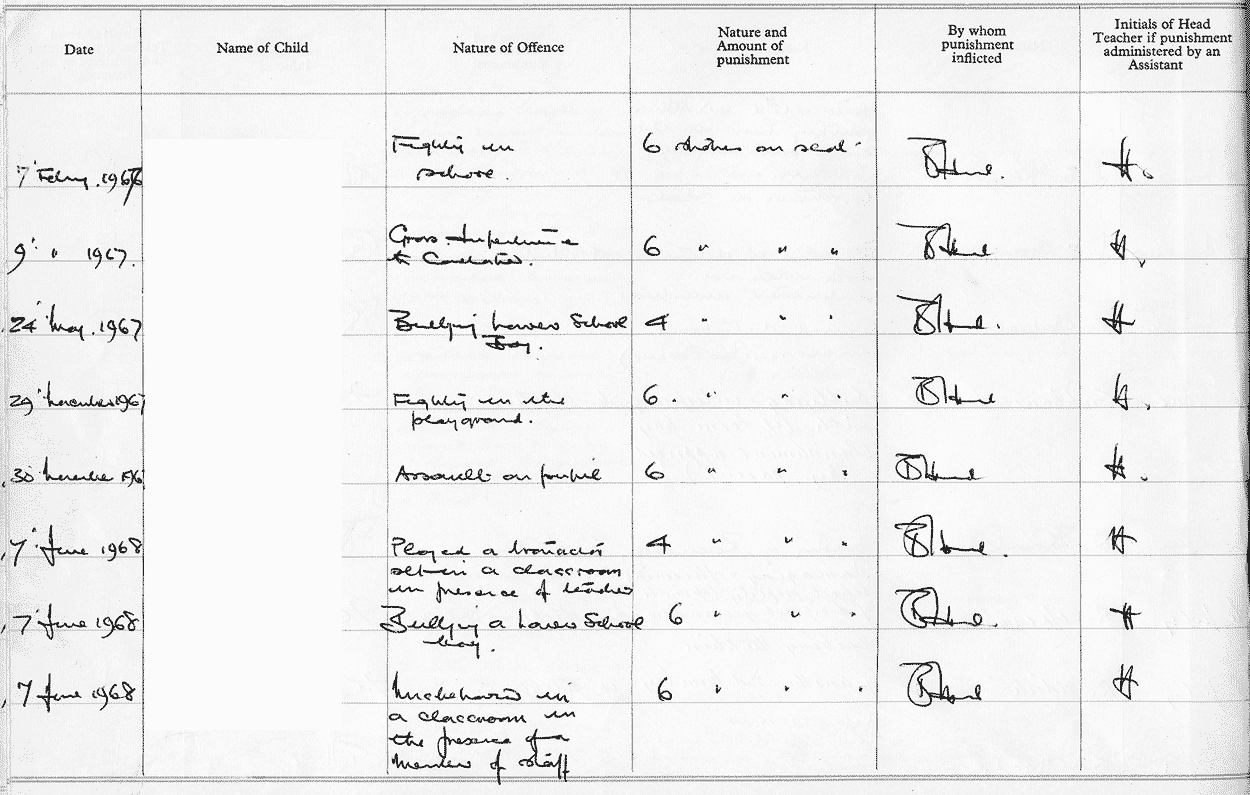 Date
Name of Child
Nature of Offence
Nature and
Amount of
punishment
By whom
punishment
inflicted
Initials of Head
Teacher if punishment
administered by an
Assistant
7 Febry. 1967
Fighting in
school.
6 strokes on seat.
H.
9 " 1967.
Gross Impertinence
to Caretaker.
6 " " "
H.
24 May. 1967
Bullying Lower School
Boy.
4 " " "
H
29 November 1967
Fighting in the
playground.
6 . " " "
H.
30 November 196
Assault on pupil
6 " " "
H.
7 June 1968
Played a transistor
set in a classroom
in presence of teacher
4 " " "
H
7 June 1968
Bullying a Lower School
boy.
6 " " "
H
7 June 1968
Misbehaved in
a classroom in
the presence of a
Member of staff
6 " " "
H